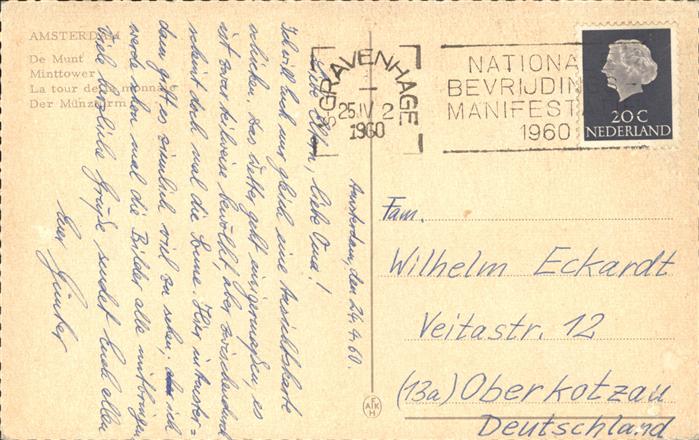 AMSTERDAM
De Munt
Minttower
La tour de la monnaie
Der Münzturm
'S GRAVENHAGE
25.IV 2
1960
NATIONA
BEVRIJDING
MANIFEST
1960
20 C
NEDERLAND
Amsterdam, den 24.4.60.
Liebe Eltern, liebe Oma!
Ich will Euch nur gleich eine Ansichtskarte
schicken. Das Wetter geht einigermaßen, es
ist zwar teilweise bewölkt, aber zwischendurch
scheint doch mal die Sonne. Hier in Amster=
dam gibt es ziemlich viel zu sehen, ich
werde schon mal die Bilder alle mitbringen.
Viele herzliche Grüße sendet Euch allen
Euer Günter
Fam.
Wilhelm Eckardt
Veitastr. 12
(13a) Oberkotzau
Deutschland
FAKH